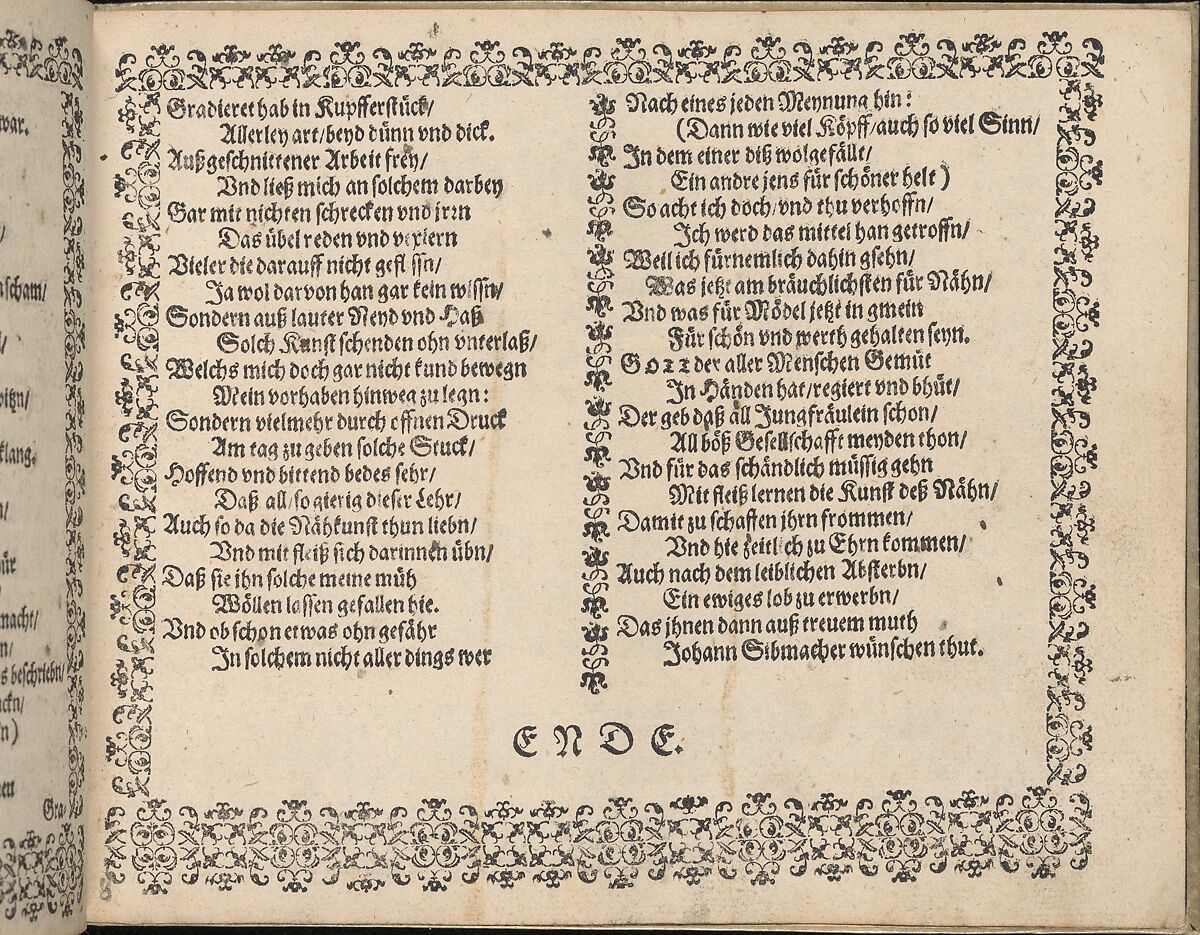 war.
nscham/
witzn/
klang.
macht/
s beschriebn/
ackn/
n)
Gra-
Gradieret hab in Kupfferstück/
Allerley art/beyd dünn vnd dick.
Außgeschnittener Arbeit frey/
Vnd ließ mich an solchem darbey
Gar mit nichten schrecken vnd irrn
Das übel reden vnd vexiern
Vieler die darauff nicht geflissn/
Ja wol darvon han gar kein wissn/
Sondern auß lauter Neyd vnd Haß
Solch Kunst schenden ohn vnterlaß/
Welchs mich doch gar nicht kund bewegn
Mein vorhaben hinweg zu legn:
Sondern vielmehr durch offnen Druck
Am tag zu geben solche Stuck/
Hoffend vnd bittend bedes sehr/
Daß all/so gierig dieser Lehr/
Auch so da die Nähkunst thun liebn/
Vnd mit fleiß sich darinnen übn/
Daß sie ihn solche meine müh
Wöllen lassen gefallen hie.
Vnd ob schon etwas ohn gefähr
In solchem nicht aller dings wer
Nach eines jeden Meynung hin:
(Dann wie viel Köpff/auch so viel Sinn/
In dem einer diß wolgefällt/
Ein andre jens für schöner helt)
So acht ich doch/vnd thu verhoffn/
Ich werd das mittel han getroffn/
Weil ich fürnemlich dahin gsehn/
Was jetzt am bräuchlichsten für Nähn/
Vnd was für Mödel jetzt in gmein
Für schön vnd werth gehalten seyn.
GOTT der aller Menschen Gemüt
In Händen hat/regiert vnd bhüt/
Der geb daß all Jungfräulein schon/
All böß Gesellschafft meyden thon/
Vnd für das schändlich müssig gehn
Mit fleiß lernen die Kunst deß Nähn/
Damit zu schaffen jhrn frommen/
Vnd hie zeitlich zu Ehrn kommen/
Auch nach dem leiblichen Absterbn/
Ein ewiges lob zu erwerbn/
Das jhnen dann auß treuem muth
Johann Sibmacher wünschen thut.
ENDE.